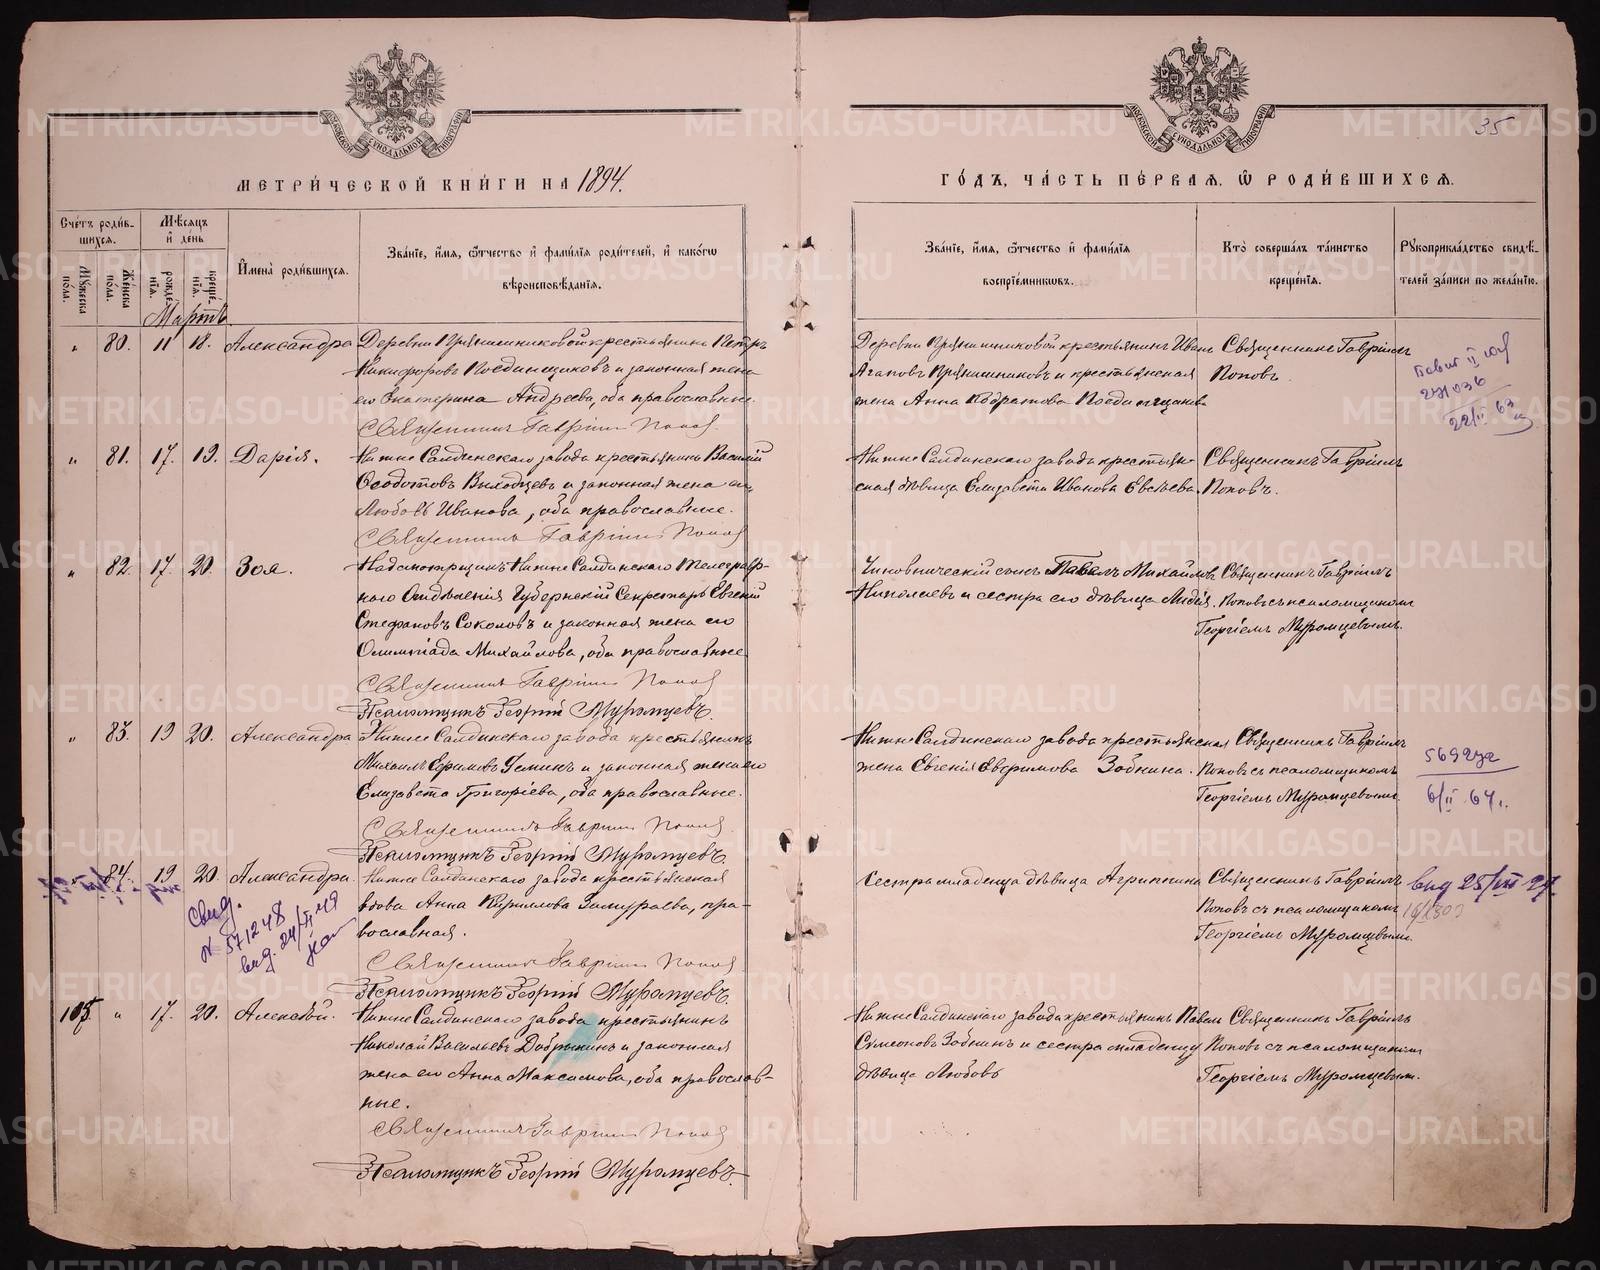 МЕТРИЧЕСКОЙ КНИГИ НА 1894.
Счетъ родившихся.
Мѣсяцъ и день
Имена родившихся.
Званіе, имя, отчество и фамилія родителей, и какого
вѣроисповѣданія.
Мужеска пола.
Женска пола.
рожденія.
крещенія.
Мартъ
" 80. 11 18. Александра
Деревни Прянишниковой крестьянинъ Петръ
Никифоровъ Поединщиковъ и законная жена
его Екатерина Андреева, оба православные.
Священникъ Гавріилъ Поповъ
" 81. 17. 19. Дарія.
Нижне Салдинскаго завода крестьянинъ Василій
Ѳеодотовъ и законная жена его
Любовь Иванова, оба православные.
Священникъ Гавріилъ Поповъ
" 82. 17. 20. Зоя.
Надсмотрщикъ Нижне Салдинскаго Телеграф-
наго Отдѣленія Губернскій Секретарь Евгеній
Стефановъ Соколовъ и законная жена его
Олимпіада Михайлова, оба православные
Священникъ Гавріилъ Поповъ
Псаломщикъ Георгій Муромцевъ.
" 83. 19 20. Александра
Нижне Салдинскаго завода крестьянинъ
Михаилъ Ефимовъ и законная жена его
Елизавета Григоріева, оба православные.
Священникъ Гавріилъ Поповъ
Псаломщикъ Георгій Муромцевъ.
84. 19 20. Александра.
Нижне Салдинскаго завода крестьянская
вдова Анна Кириллова Замураева, пра-
вославная.
Свид.
№ 571248
выд. 24/II 49
Священникъ Гавріилъ Поповъ
Псаломщикъ Георгій Муромцевъ.
105. " 17. 20. Алексѣй.
Нижне Салдинскаго завода крестьянинъ
Николай Васильевъ Добрынинъ и законная
жена его Анна Максимова, оба православ-
ные.
Священникъ Гавріилъ Поповъ
Псаломщикъ Георгій Муромцевъ.
35
ГОДЪ, ЧАСТЬ ПЕРВАЯ, Ѡ РОДИВШИХСЯ.
Званіе, имя, отчество и фамилія
воспріемниковъ.
Кто совершалъ таинство
крещенія.
Рукоприкладство свидѣ-
телей записи по желанію.
Деревни Прянишниковой крестьянинъ Иванъ
Агаповъ Прянишниковъ и крестьянская
жена Анна Кодратова
Священникъ Гавріилъ
Поповъ.
22/II 63
Нижне Салдинскаго завода крестьян-
ская дѣвица Елизавета Иванова Евсѣева.
Священникъ Гавріилъ
Поповъ.
Чиновническій сынъ Павелъ Михайловъ
Николаевъ и сестра его дѣвица Лидія.
Священникъ Гавріилъ
Поповъ съ псаломщикомъ
Георгіемъ Муромцевымъ.
Нижне Салдинскаго завода крестьянская
жена Евгенія Зобнина.
Священникъ Гавріилъ
Поповъ съ псаломщикомъ
Георгіемъ Муромцевымъ.
6/II 64 г.
Сестра младенца дѣвица Агриппина
Священникъ Гавріилъ
Поповъ съ псаломщикомъ
Георгіемъ Муромцевымъ.
выд 25/VII 27.
Нижне Салдинскаго завода крестьянинъ Павелъ
Симеоновъ Зобнинъ и сестра младенца
дѣвица Любовь
Священникъ Гавріилъ
Поповъ съ псаломщикомъ
Георгіемъ Муромцевымъ.
METRIKI.GASO-URAL.RU